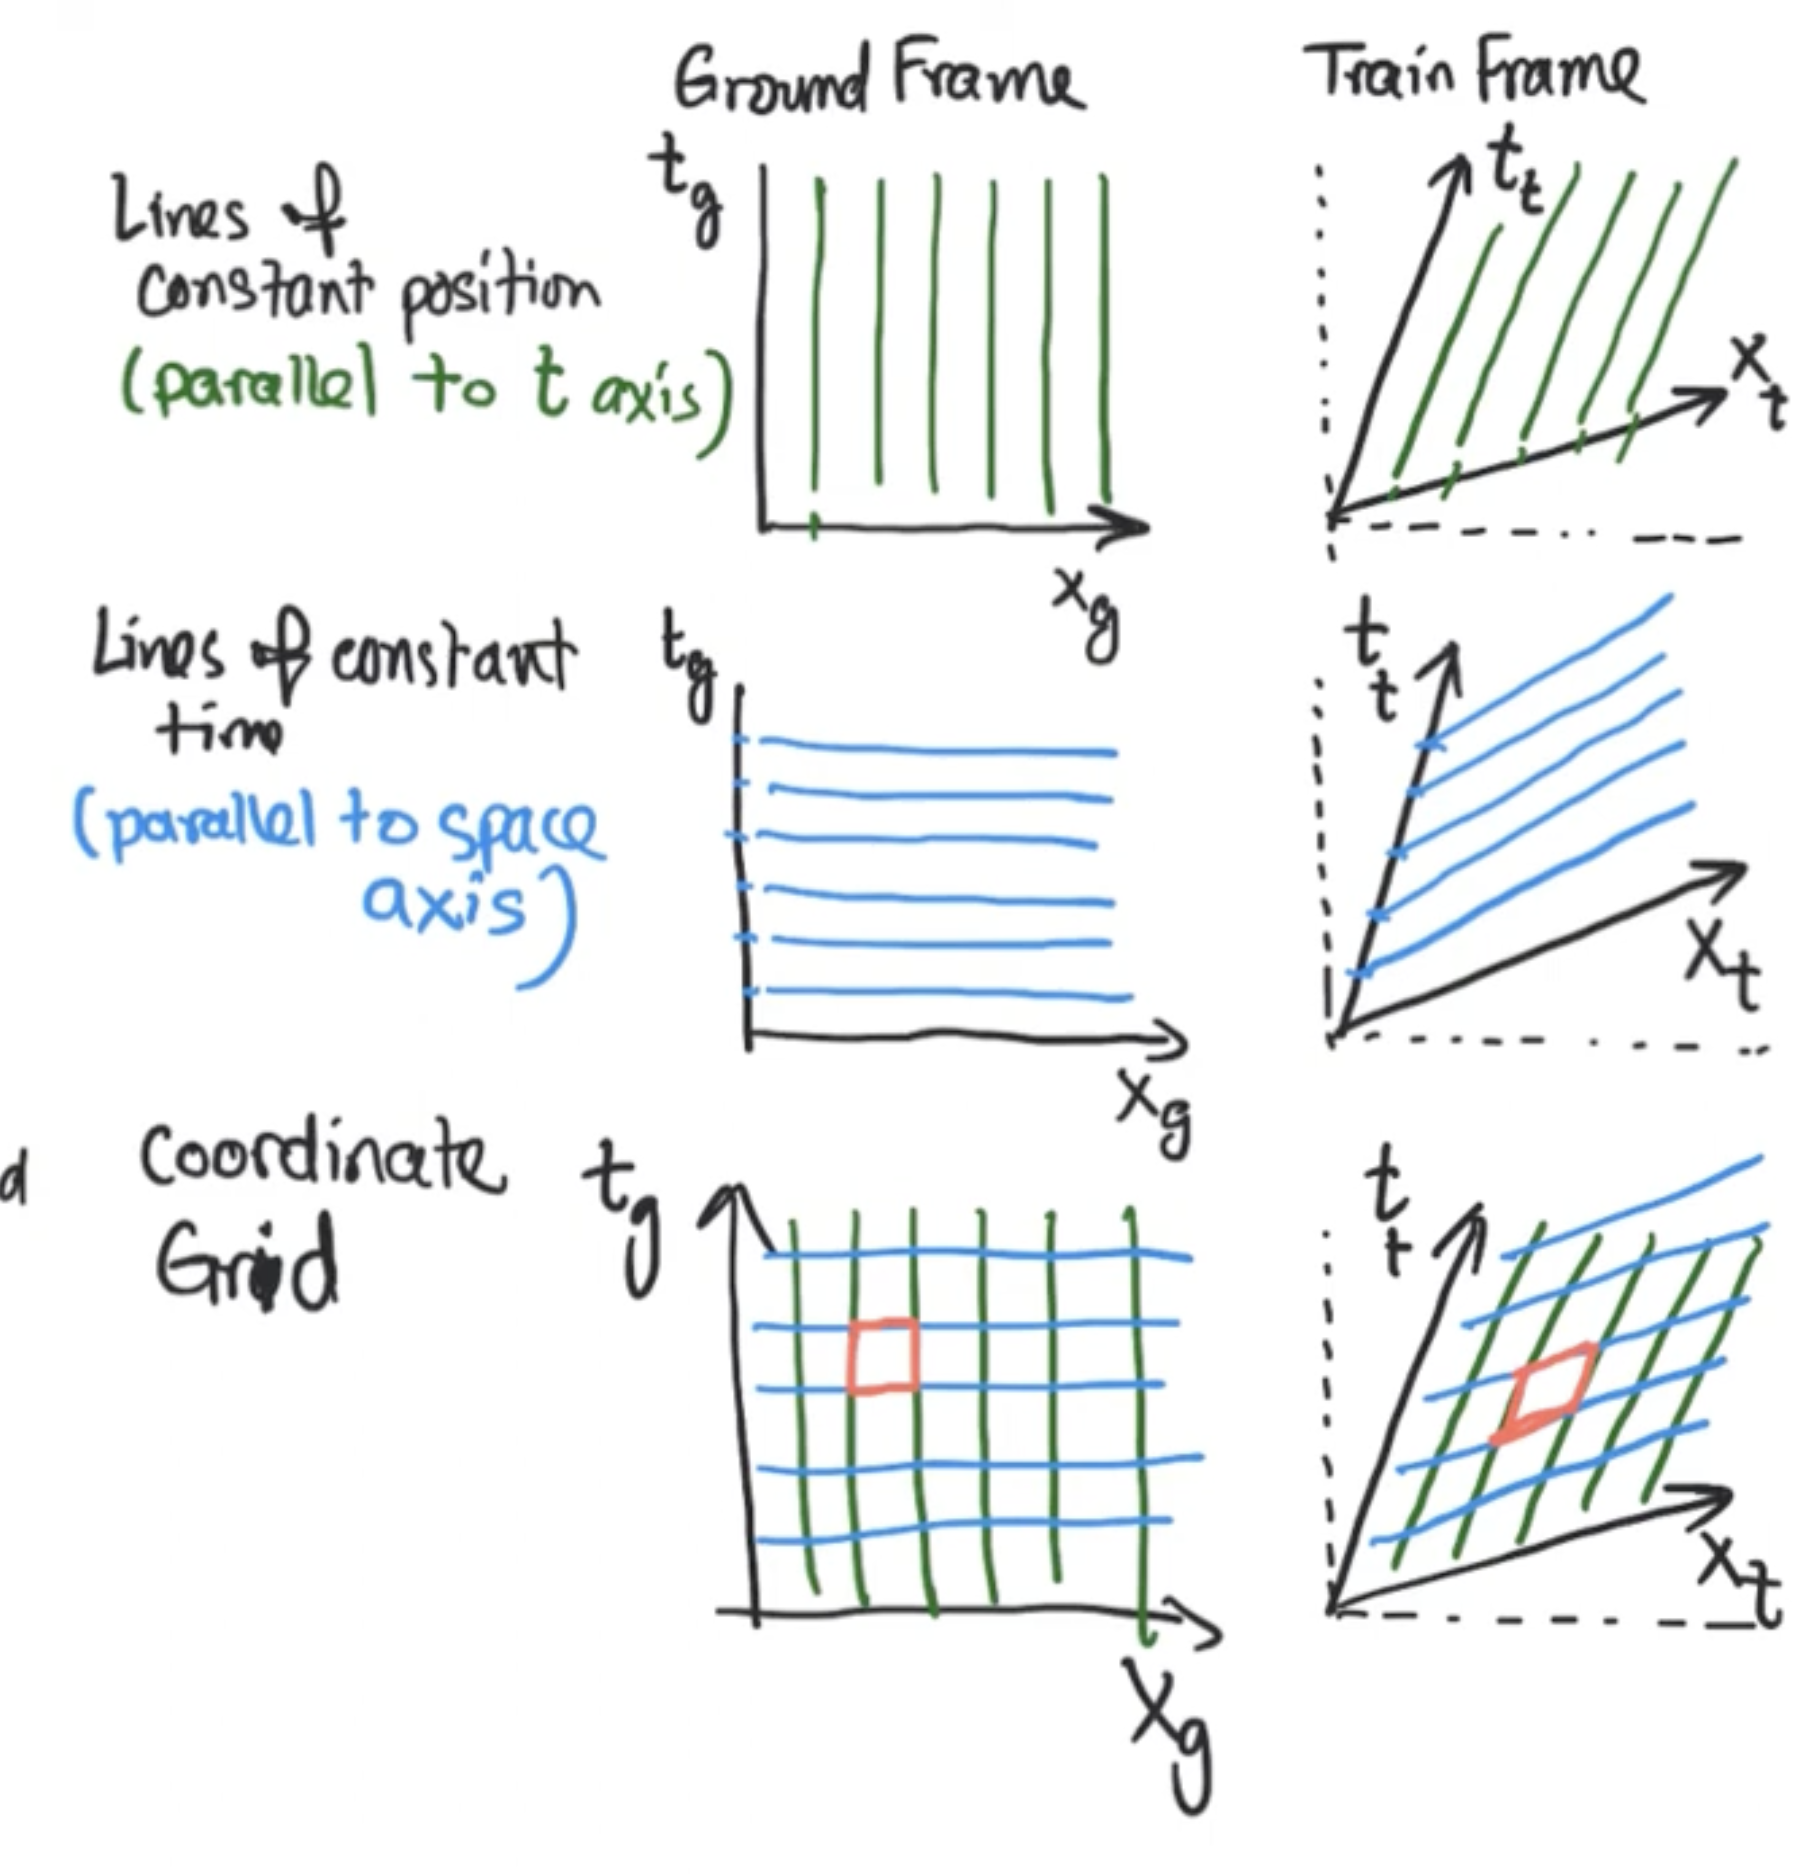 Ground Frame
Train Frame
Lines of
constant position
(parallel to t axis)
tg
xg
tt
xt
Lines of constant
time
(parallel to space
axis)
tg
xg
tt
xt
d
Coordinate
Grid
tg
xg
tt
xt